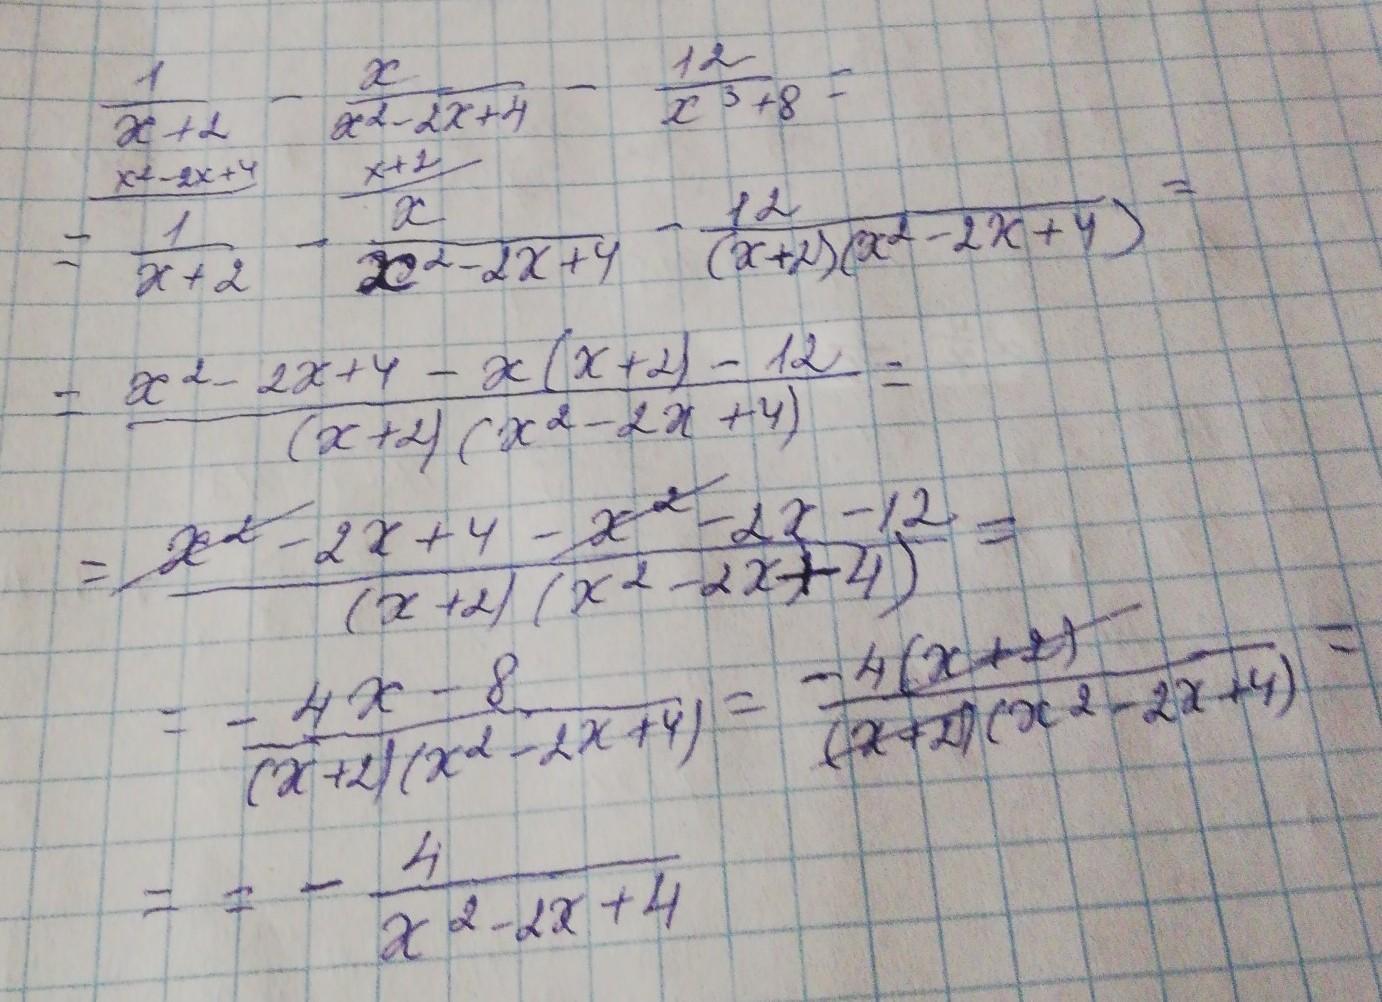 1/(x+2) - x/(x²-2x+4) - 12/(x³+8) =
x²-2x+4 x+2
= 1/(x+2) - x/(x²-2x+4) - 12/((x+2)(x²-2x+4)) =
= (x²-2x+4 - x(x+2) - 12)/((x+2)(x²-2x+4)) =
= (x²-2x+4 - x²-2x-12)/((x+2)(x²-2x+4)) =
= (-4x-8)/((x+2)(x²-2x+4)) = (-4(x+2))/((x+2)(x²-2x+4)) =
= = - 4/(x²-2x+4)